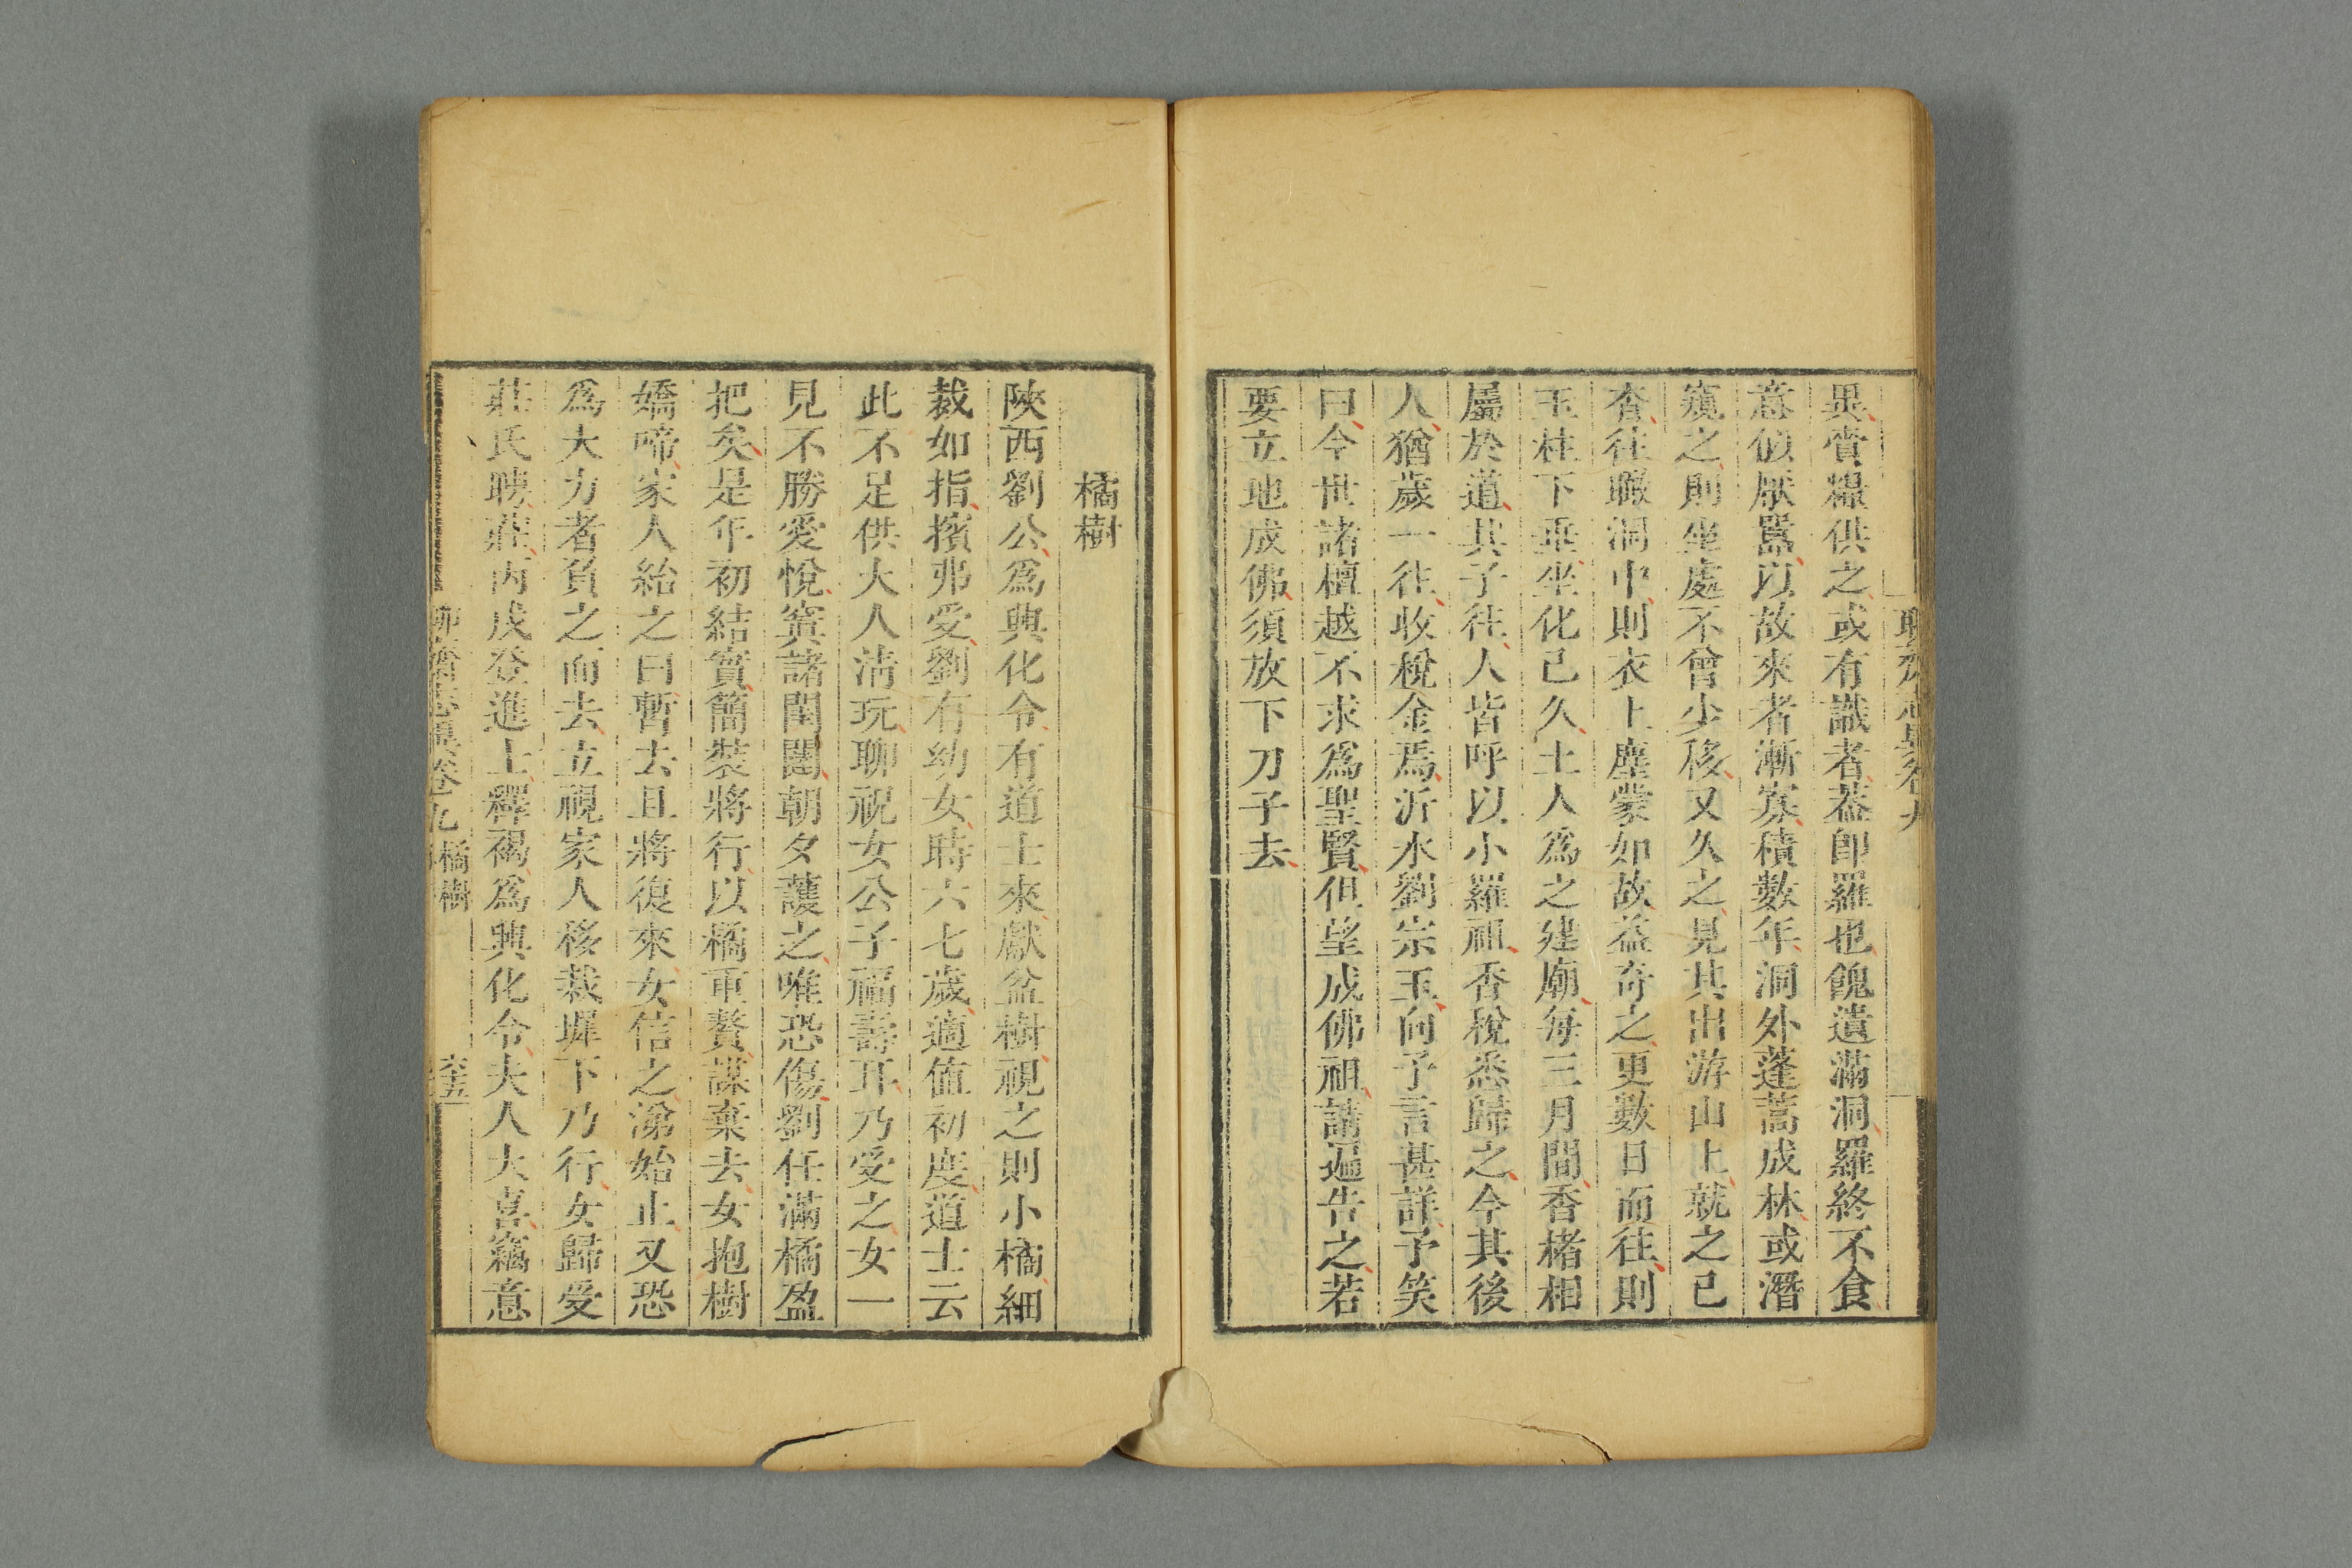 異賫糧供之或有識者葢卽羅也餽遺滿洞羅終不食
意似厭嚣以故來者漸寡積數年洞外蓬蒿成林或潛
窺之則坐處不曾少移又久之見其出游山上就之已
杳往瞰洞中則衣上塵蒙如故益奇之更數日而往則
玉柱下垂坐化已久土人爲之建廟每三月間香楮相
屬於道其子往人皆呼以小羅祖香稅悉歸之今其後
人猶歲一往收稅金焉沂水劉宗玉向予言甚詳予笑
曰今世諸檀越不求爲聖賢但望成佛祖請遍告之若
要立地成佛須放下刀子去
橘樹
陝西劉公爲興化令有道士來獻盆樹視之則小橘細
裁如指擯弗受劉有幼女時六七歲適值初度道士云
此不足供大人淸玩聊祝女公子福壽耳乃受之女一
見不勝愛悅寘諸閨闥朝夕護之唯恐傷劉任滿橘盈
把矣是年初結實簡裝將行以橘重贅謀棄去女抱樹
嬌啼家人紿之曰暫去且將復來女信之涕始止又恐
爲大力者負之而去立視家人移栽墀下乃行女歸受
莊氏聘莊丙戌登進士釋褐爲興化令夫人大喜竊意
聊齋志異卷九 橘樹